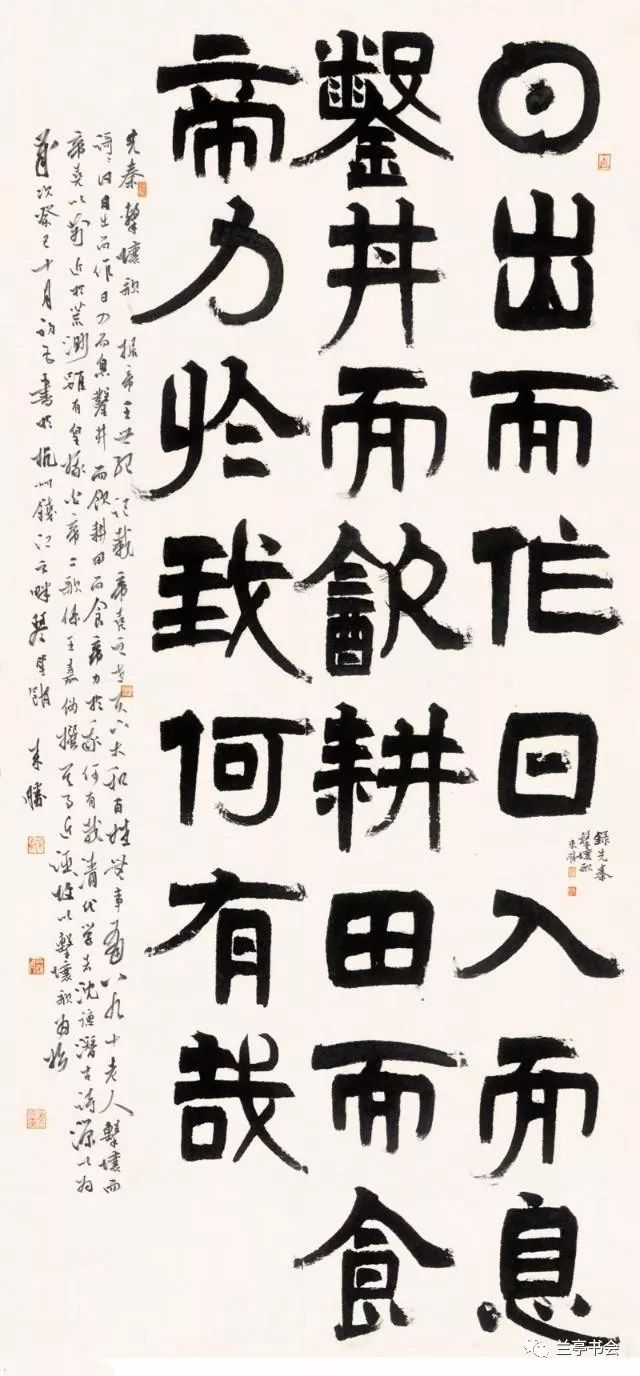 日出而作日入而息
鑿井而飲耕田而食
帝力於我何有哉
錄先秦
擊壤歌
朱勝
先秦擊壤歌 據帝王世紀記載帝堯之世天下太和百姓無事有八九十老人擊壤而
謌謌曰日出而作日入而息鑿井而飲耕田而食帝力於我何有哉清代學者沈德潛古詩源以為
帝堯以前近於荒渺雖有皇娥白帝二歌係王嘉偽撰其事近誣故以擊壤歌為始
歲次癸巳十月
書於杭州錢江之畔
兰亭书会